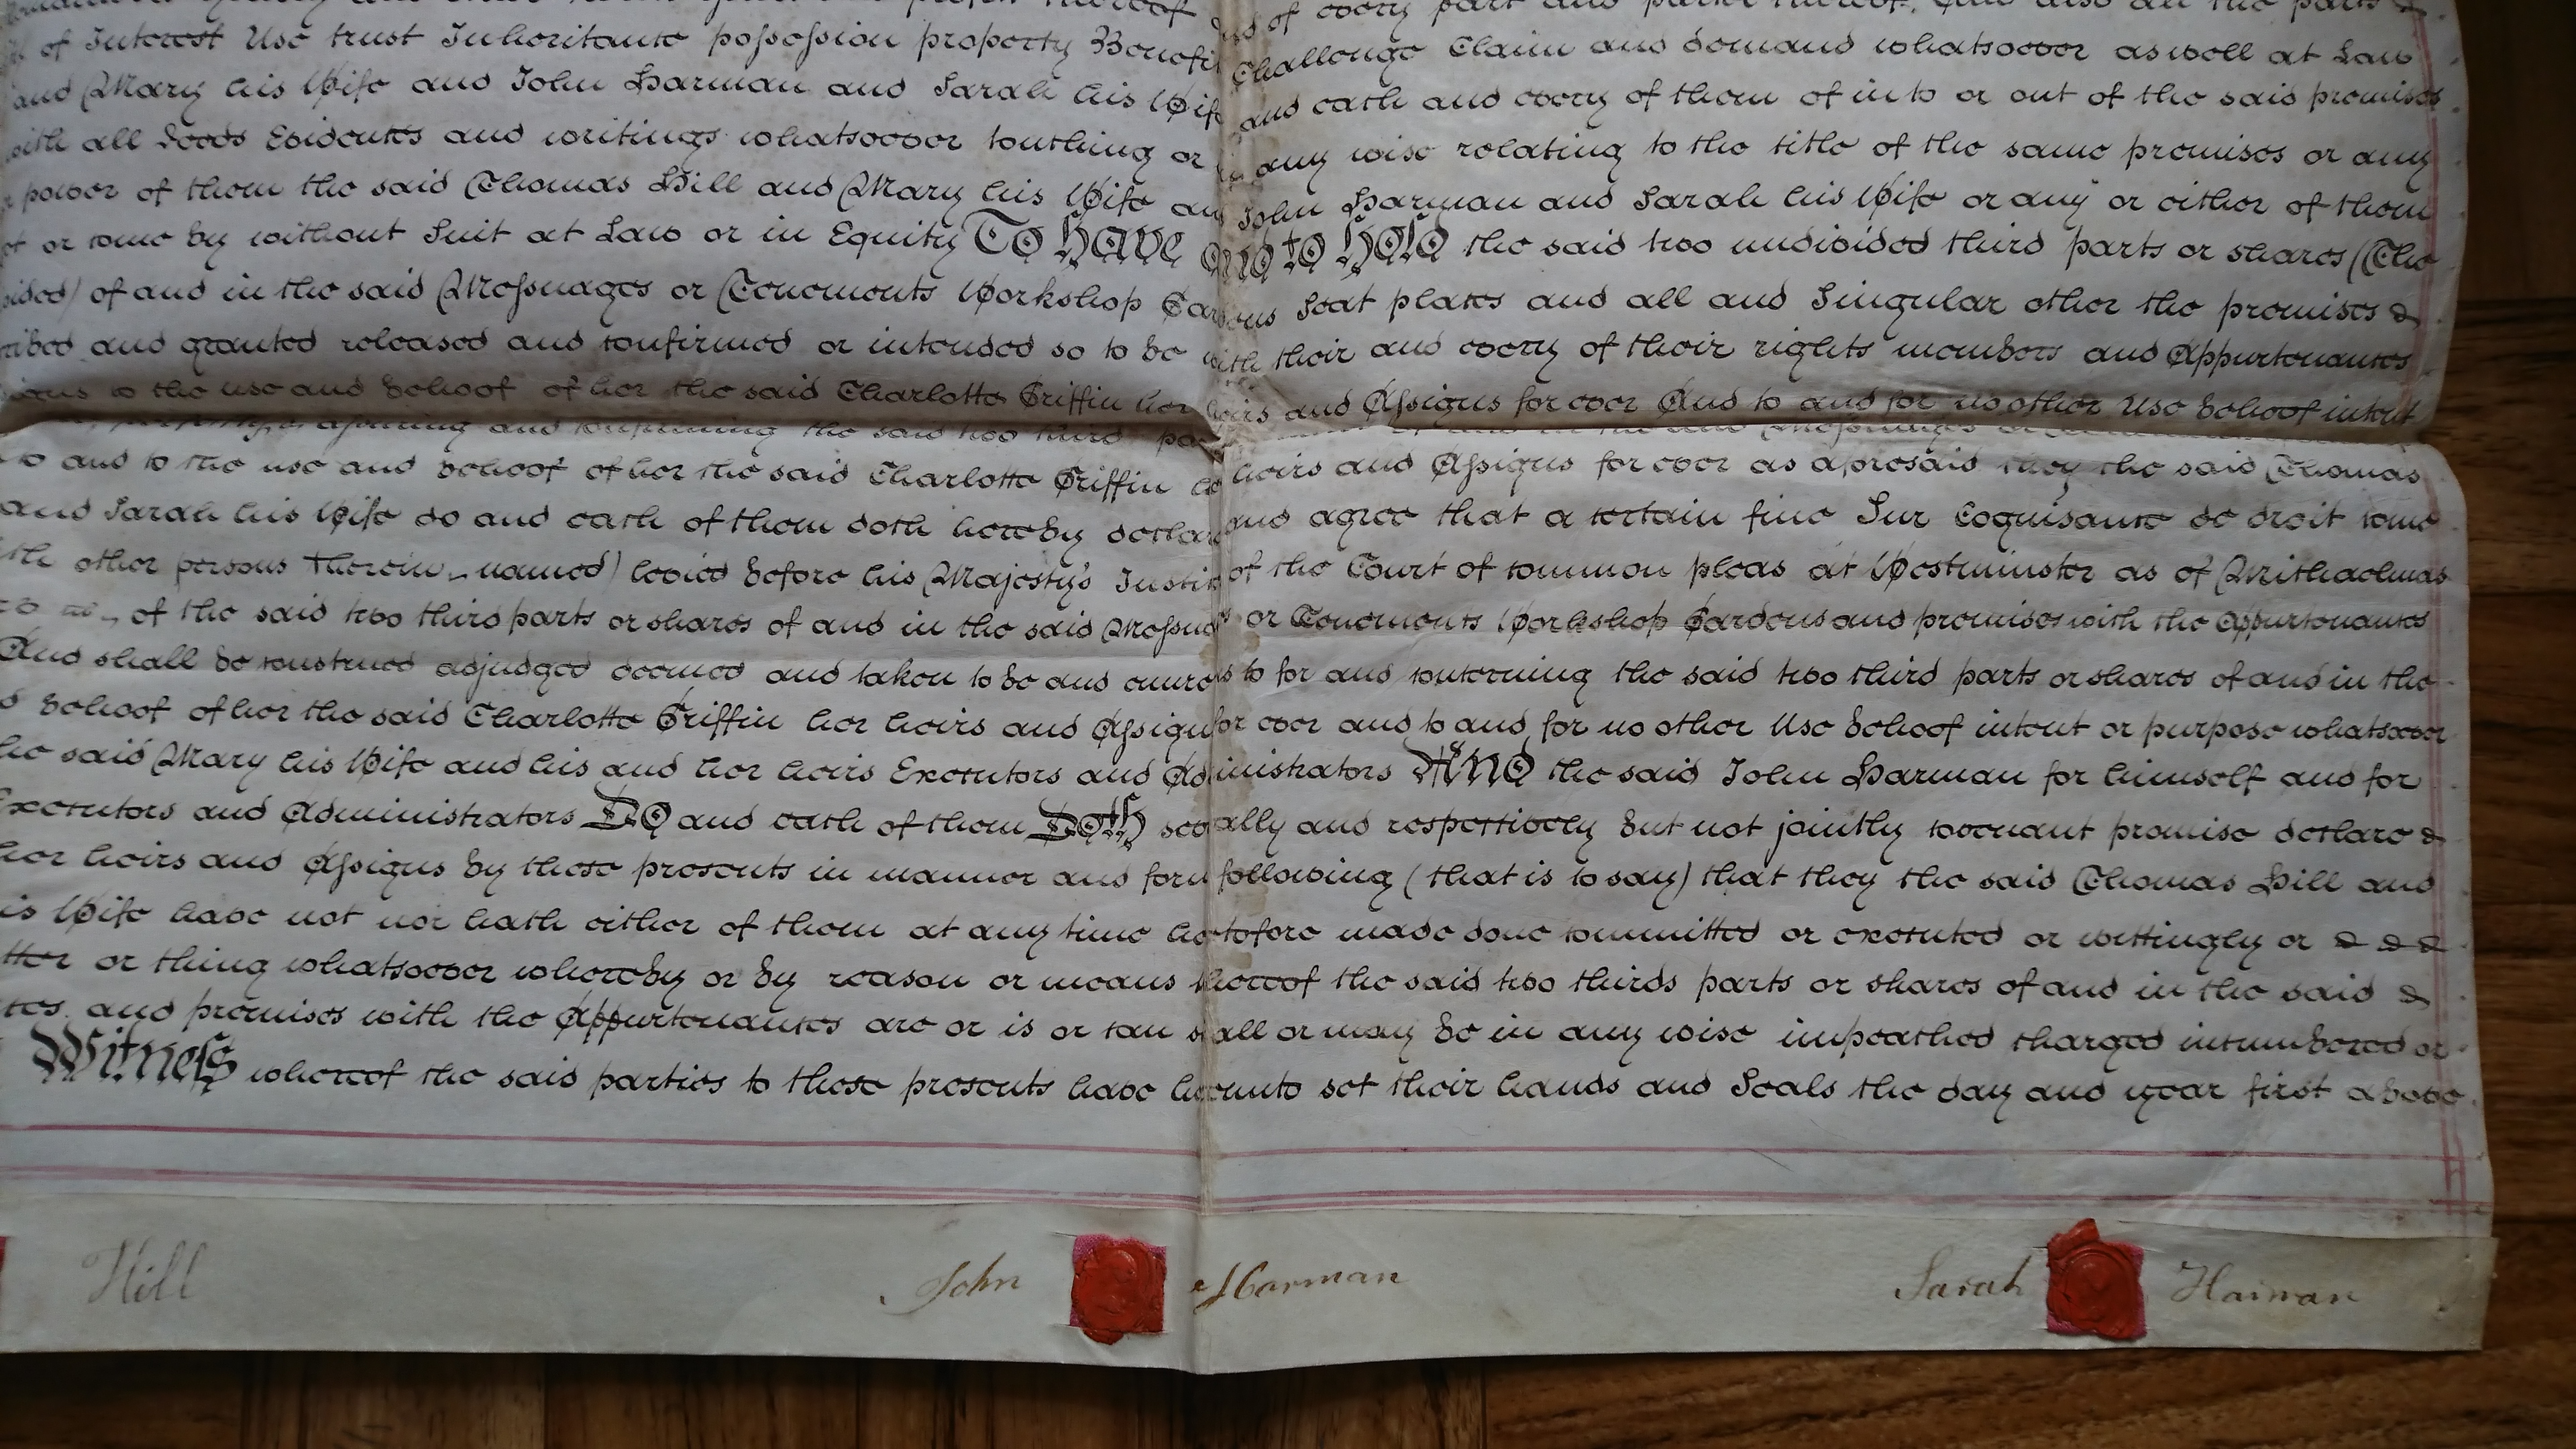 of Interest Use trust Inheritance possession property Benefi Challenge Claim and demand whatsoever as well at Law
and Mary his Wife and John Harman and Sarah his Wife and each and every of them of in to or out of the said premises
with all Deeds Evidences and writings whatsoever touching or in any wise relating to the title of the same premises or any
power of them the said Thomas Hill and Mary his Wife and John Harman and Sarah his Wife or any or either of them
or come by without Suit at Law or in Equity To Have and to Hold the said two undivided third parts or shares (The
of and in the said Messuages or Tenements Workshop Seat places and all and Singular other the premises &
and granted released and confirmed or intended so to be with their and every of their rights members and Appurtenances
to the use and behoof of her the said Charlotte Griffin her heirs and Assigns for ever And to and for no other Use behoof intent
and confirming the said two third
to and to the use and behoof of her the said Charlotte Griffin heirs and Assigns for ever as aforesaid they the said Thomas
and Sarah his Wife do and each of them doth hereby declare and agree that a certain fine Sur Cognisance de droit come
other persons therein named) levied before his Majesty's Justices of the Court of common pleas at Westminster as of Michaelmas
of the said two third parts or shares of and in the said Messuages or Tenements Workshop Gardens and premises with the Appurtenances
And shall be construed adjudged deemed and taken to be and enures to for and concerning the said two third parts or shares of and in the
behoof of her the said Charlotte Griffin her heirs and Assigns for ever and to and for no other Use behoof intent or purpose whatsoever
said Mary his Wife and his and her heirs Executors and Administrators And the said John Harman for himself and for
Executors and Administrators Do and each of them Doth severally and respectively but not jointly covenant promise declare &
her heirs and Assigns by these presents in manner and form following (that is to say) that they the said Thomas Hill and
his Wife have not nor hath either of them at any time heretofore made done committed or executed or wittingly or & & &
or thing whatsoever whereby or by reason or means thereof the said two thirds parts or shares of and in the said &
and premises with the Appurtenances are or is or can shall or may be in any wise impeached charged incumbered or
Witness whereof the said parties to these presents have hereunto set their hands and Seals the day and year first above
Hill John Harman Sarah Harman